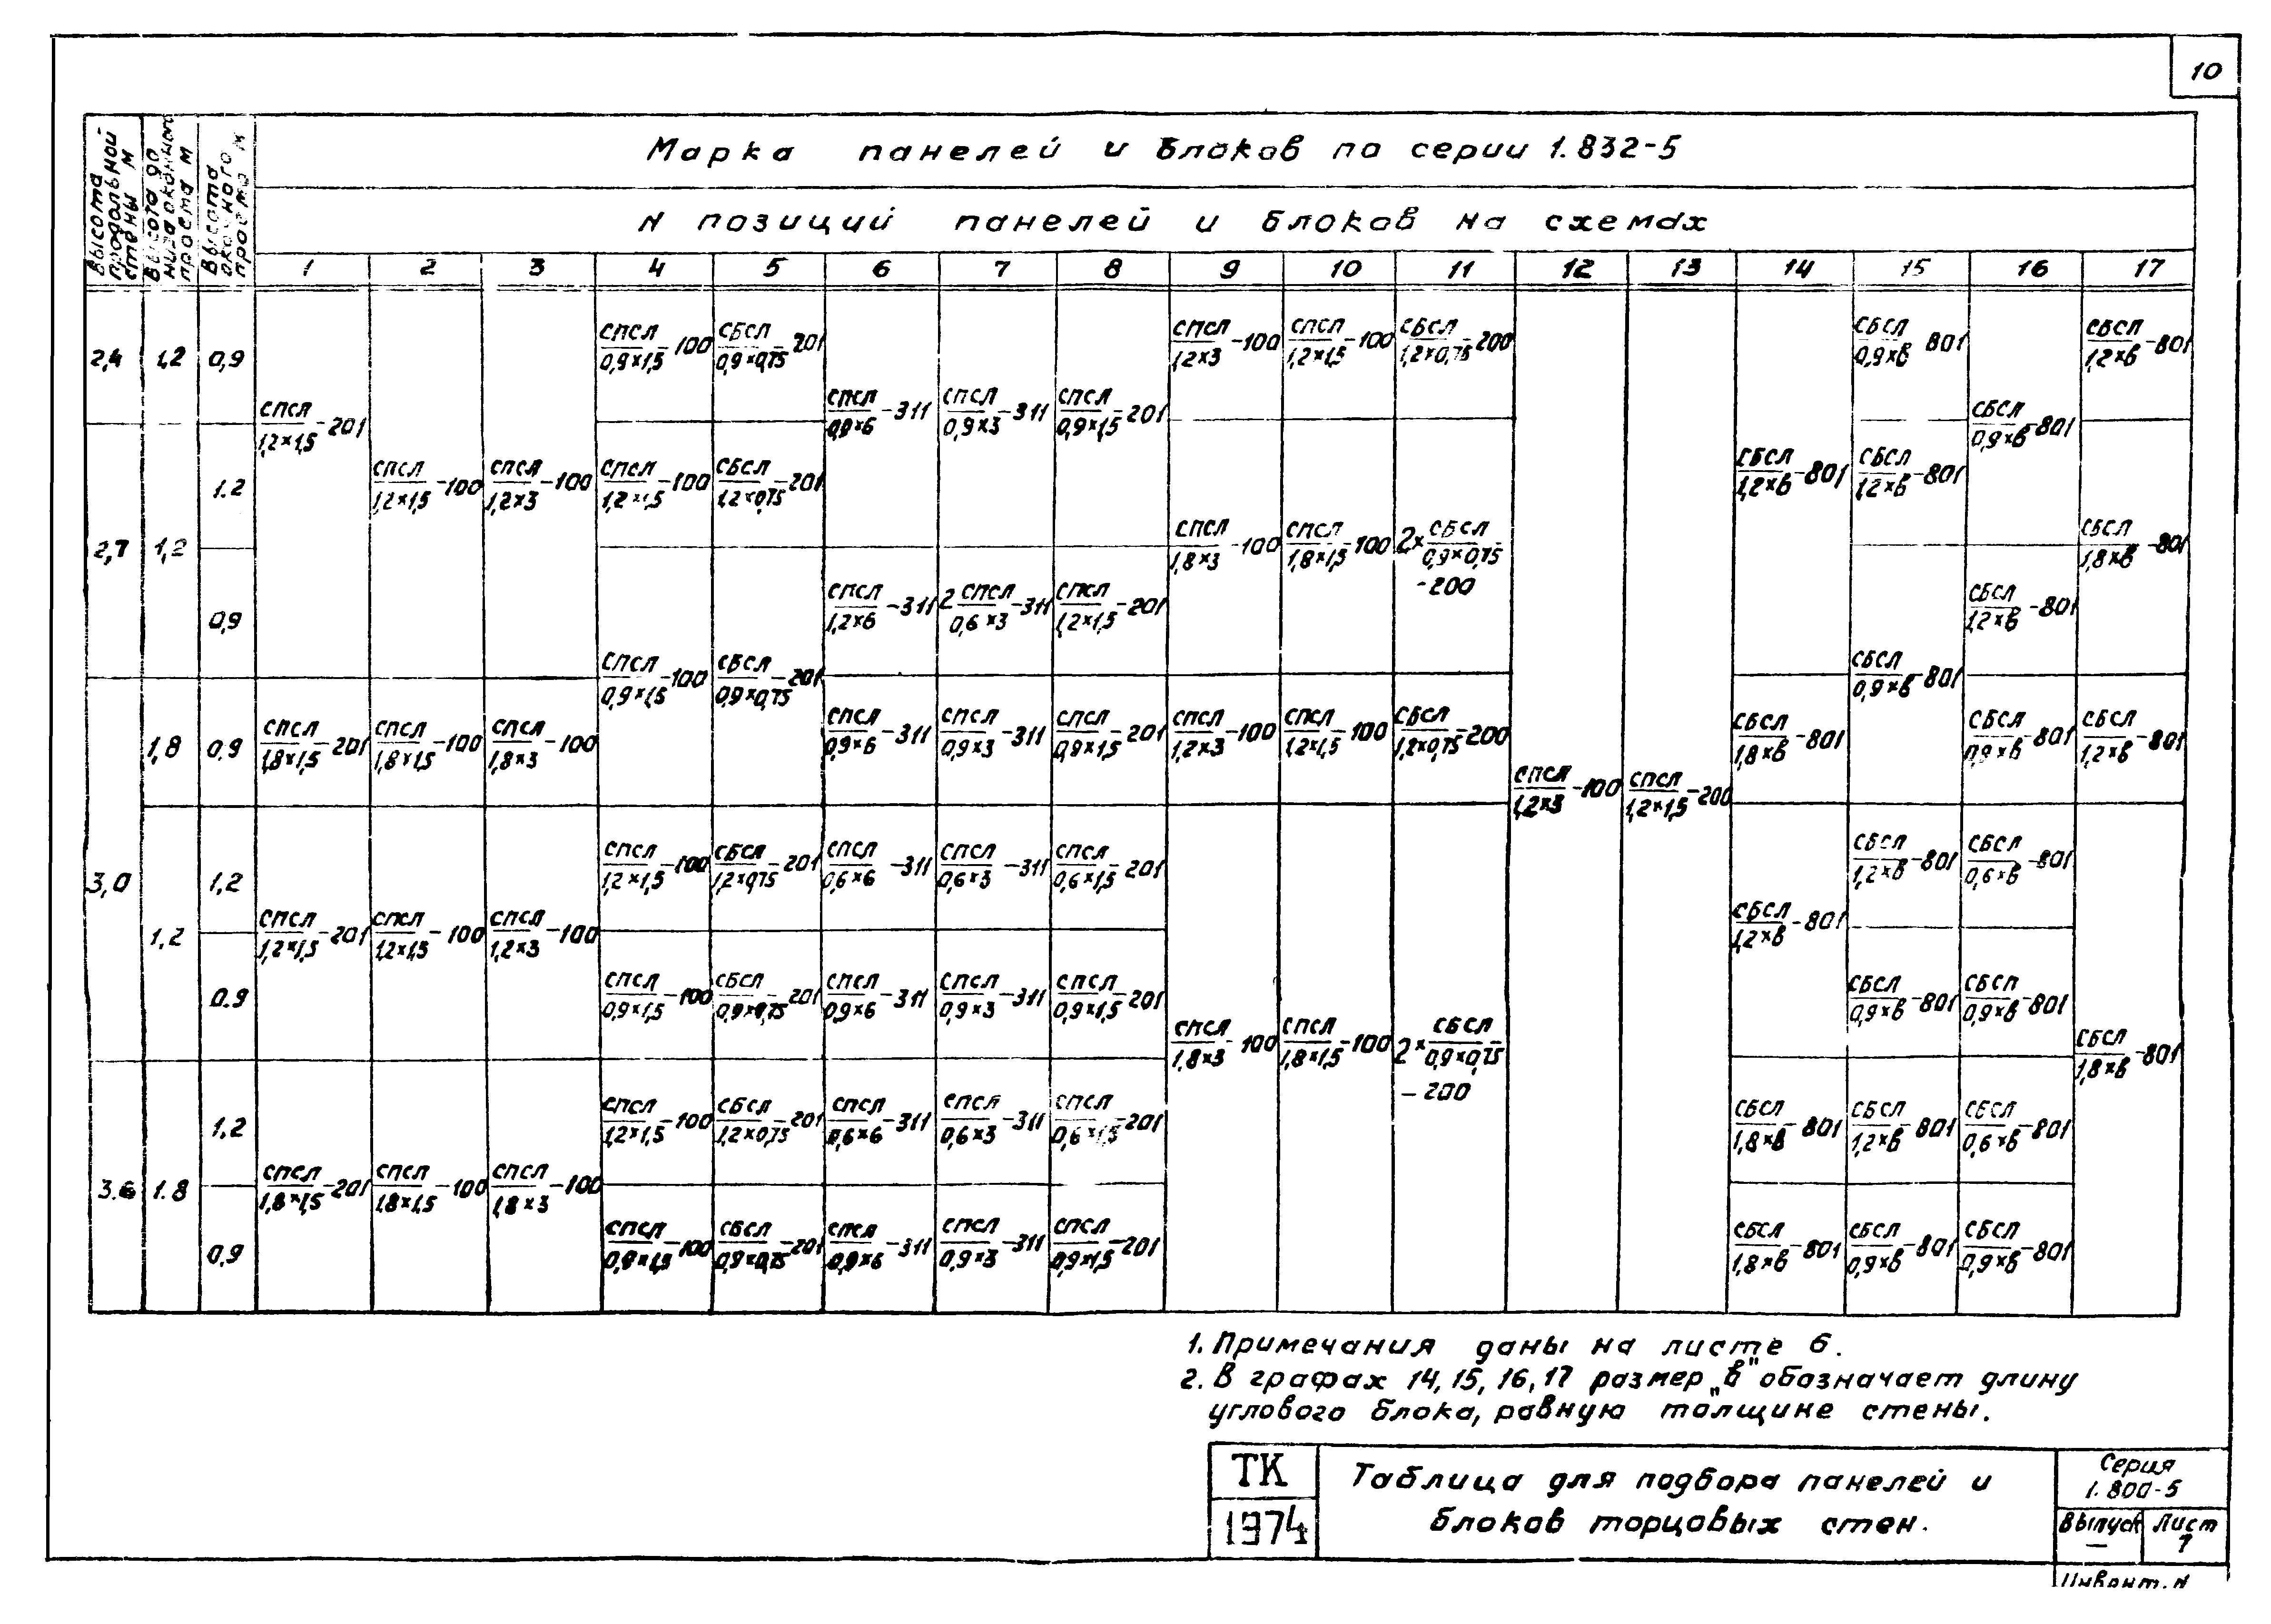 10
Высота продольной стены м
Высота до низа оконного проема м
Высота оконного проема м
Марка панелей и блоков по серии 1.832-5
N позиций панелей и блоков на схемах
1 2 3 4 5 6 7 8 9 10 11 12 13 14 15 16 17
2,4 1,2 0,9
СПСЛ/0,9×1,5-100 СБСЛ/0,9×0,75-201 СПСЛ/1,2×3-100 СПСЛ/1,2×1,5-100 СБСЛ/1,2×0,75-200 СБСЛ/0,9×в-801 СБСЛ/1,2×в-801
СПСЛ/1,2×1,5-201 СПСЛ/0,9×6-311 СПСЛ/0,9×3-311 СПСЛ/0,9×1,5-201 СБСЛ/0,9×в-801
1.2
СПСЛ/1,2×1,5-100 СПСЛ/1,2×3-100 СПСЛ/1,2×1,5-100 СБСЛ/1,2×0,75-201 СБСЛ/1,2×в-801 СБСЛ/1,2×в-801
2,7 1,2
СПСЛ/1,8×3-100 СПСЛ/1,8×1,5-100 2×СБСЛ/0,9×0,75-200 СБСЛ/1,8×в-801
0,9
СПСЛ/1,2×6-311 2СПСЛ/0,6×3-311 СПСЛ/1,2×1,5-201 СБСЛ/1,2×в-801
СПСЛ/0,9×1,5-100 СБСЛ/0,9×0,75-201 СБСЛ/0,9×в-801
1,8 0,9
СПСЛ/1,8×1,5-201 СПСЛ/1,8×1,5-100 СПСЛ/1,8×3-100 СПСЛ/0,9×6-311 СПСЛ/0,9×3-311 СПСЛ/0,9×1,5-201 СПСЛ/1,2×3-100 СПСЛ/1,2×1,5-100 СБСЛ/1,2×0,75-200 СБСЛ/1,8×в-801 СБСЛ/0,9×в-801 СБСЛ/1,2×в-801
СПСЛ/1,2×3-100 СПСЛ/1,2×1,5-200
3,0 1,2
СПСЛ/1,2×1,5-100 СБСЛ/1,2×0,75-201 СПСЛ/0,6×6-311 СПСЛ/0,6×3-311 СПСЛ/0,6×1,5-201 СБСЛ/1,2×в-801 СБСЛ/0,6×в-801
1,2
СПСЛ/1,2×1,5-201 СПСЛ/1,2×1,5-100 СПСЛ/1,2×3-100 СБСЛ/1,2×в-801
0.9
СПСЛ/0,9×1,5-100 СБСЛ/0,9×0,75-201 СПСЛ/0,9×6-311 СПСЛ/0,9×3-311 СПСЛ/0,9×1,5-201 СБСЛ/0,9×в-801 СБСЛ/0,9×в-801
СПСЛ/1,8×3-100 СПСЛ/1,8×1,5-100 2×СБСЛ/0,9×0,75-200 СБСЛ/1,8×в-801
1,2
СПСЛ/1,2×1,5-100 СБСЛ/1,2×0,75-201 СПСЛ/0,6×6-311 СПСЛ/0,6×3-311 СПСЛ/0,6×1,5-201 СБСЛ/1,8×в-801 СБСЛ/1,2×в-801 СБСЛ/0,6×в-801
3.6 1.8
СПСЛ/1,8×1,5-201 СПСЛ/1,8×1,5-100 СПСЛ/1,8×3-100
0,9
СПСЛ/0,9×1,5-100 СБСЛ/0,9×0,75-201 СПСЛ/0,9×6-311 СПСЛ/0,9×3-311 СПСЛ/0,9×1,5-201 СБСЛ/1,8×в-801 СБСЛ/0,9×в-801 СБСЛ/0,9×в-801
1. Примечания даны на листе 6.
2. В графах 14, 15, 16, 17 размер „в" обозначает длину
углового блока, равную толщине стены.
ТК
1974
Таблица для подбора панелей и
блоков торцовых стен.
Серия
1.800-5
Выпуск Лист
— 7
Инвент. N